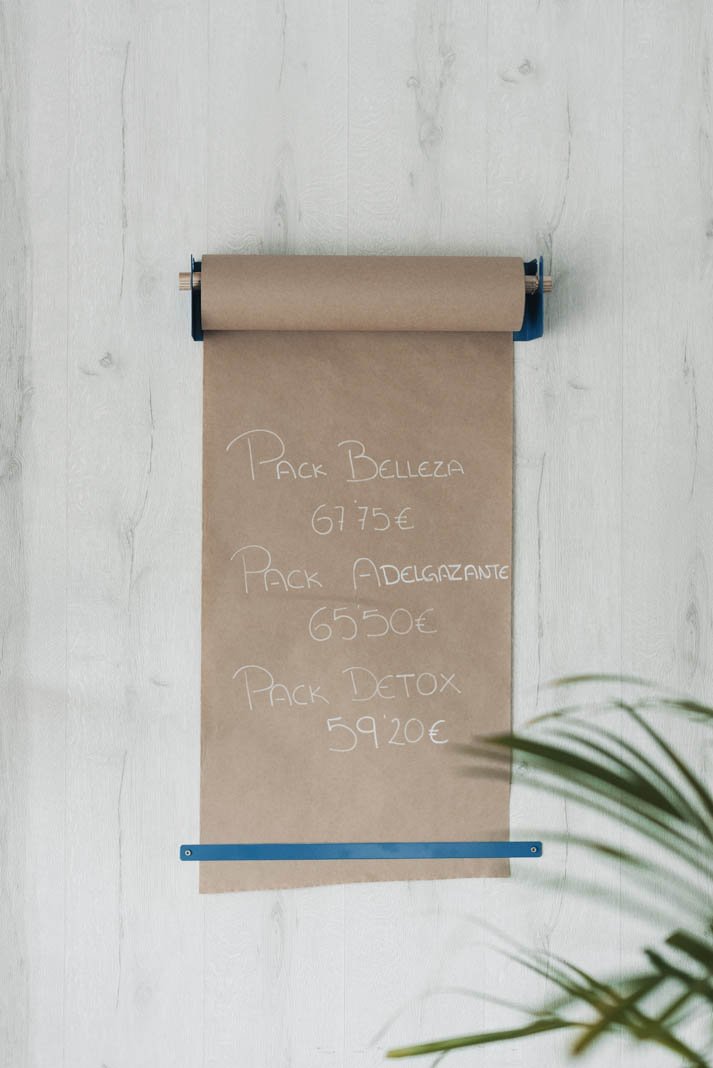 PACK BELLEZA
67'75€
PACK ADELGAZANTE
65'50€
PACK DETOX
59'20€